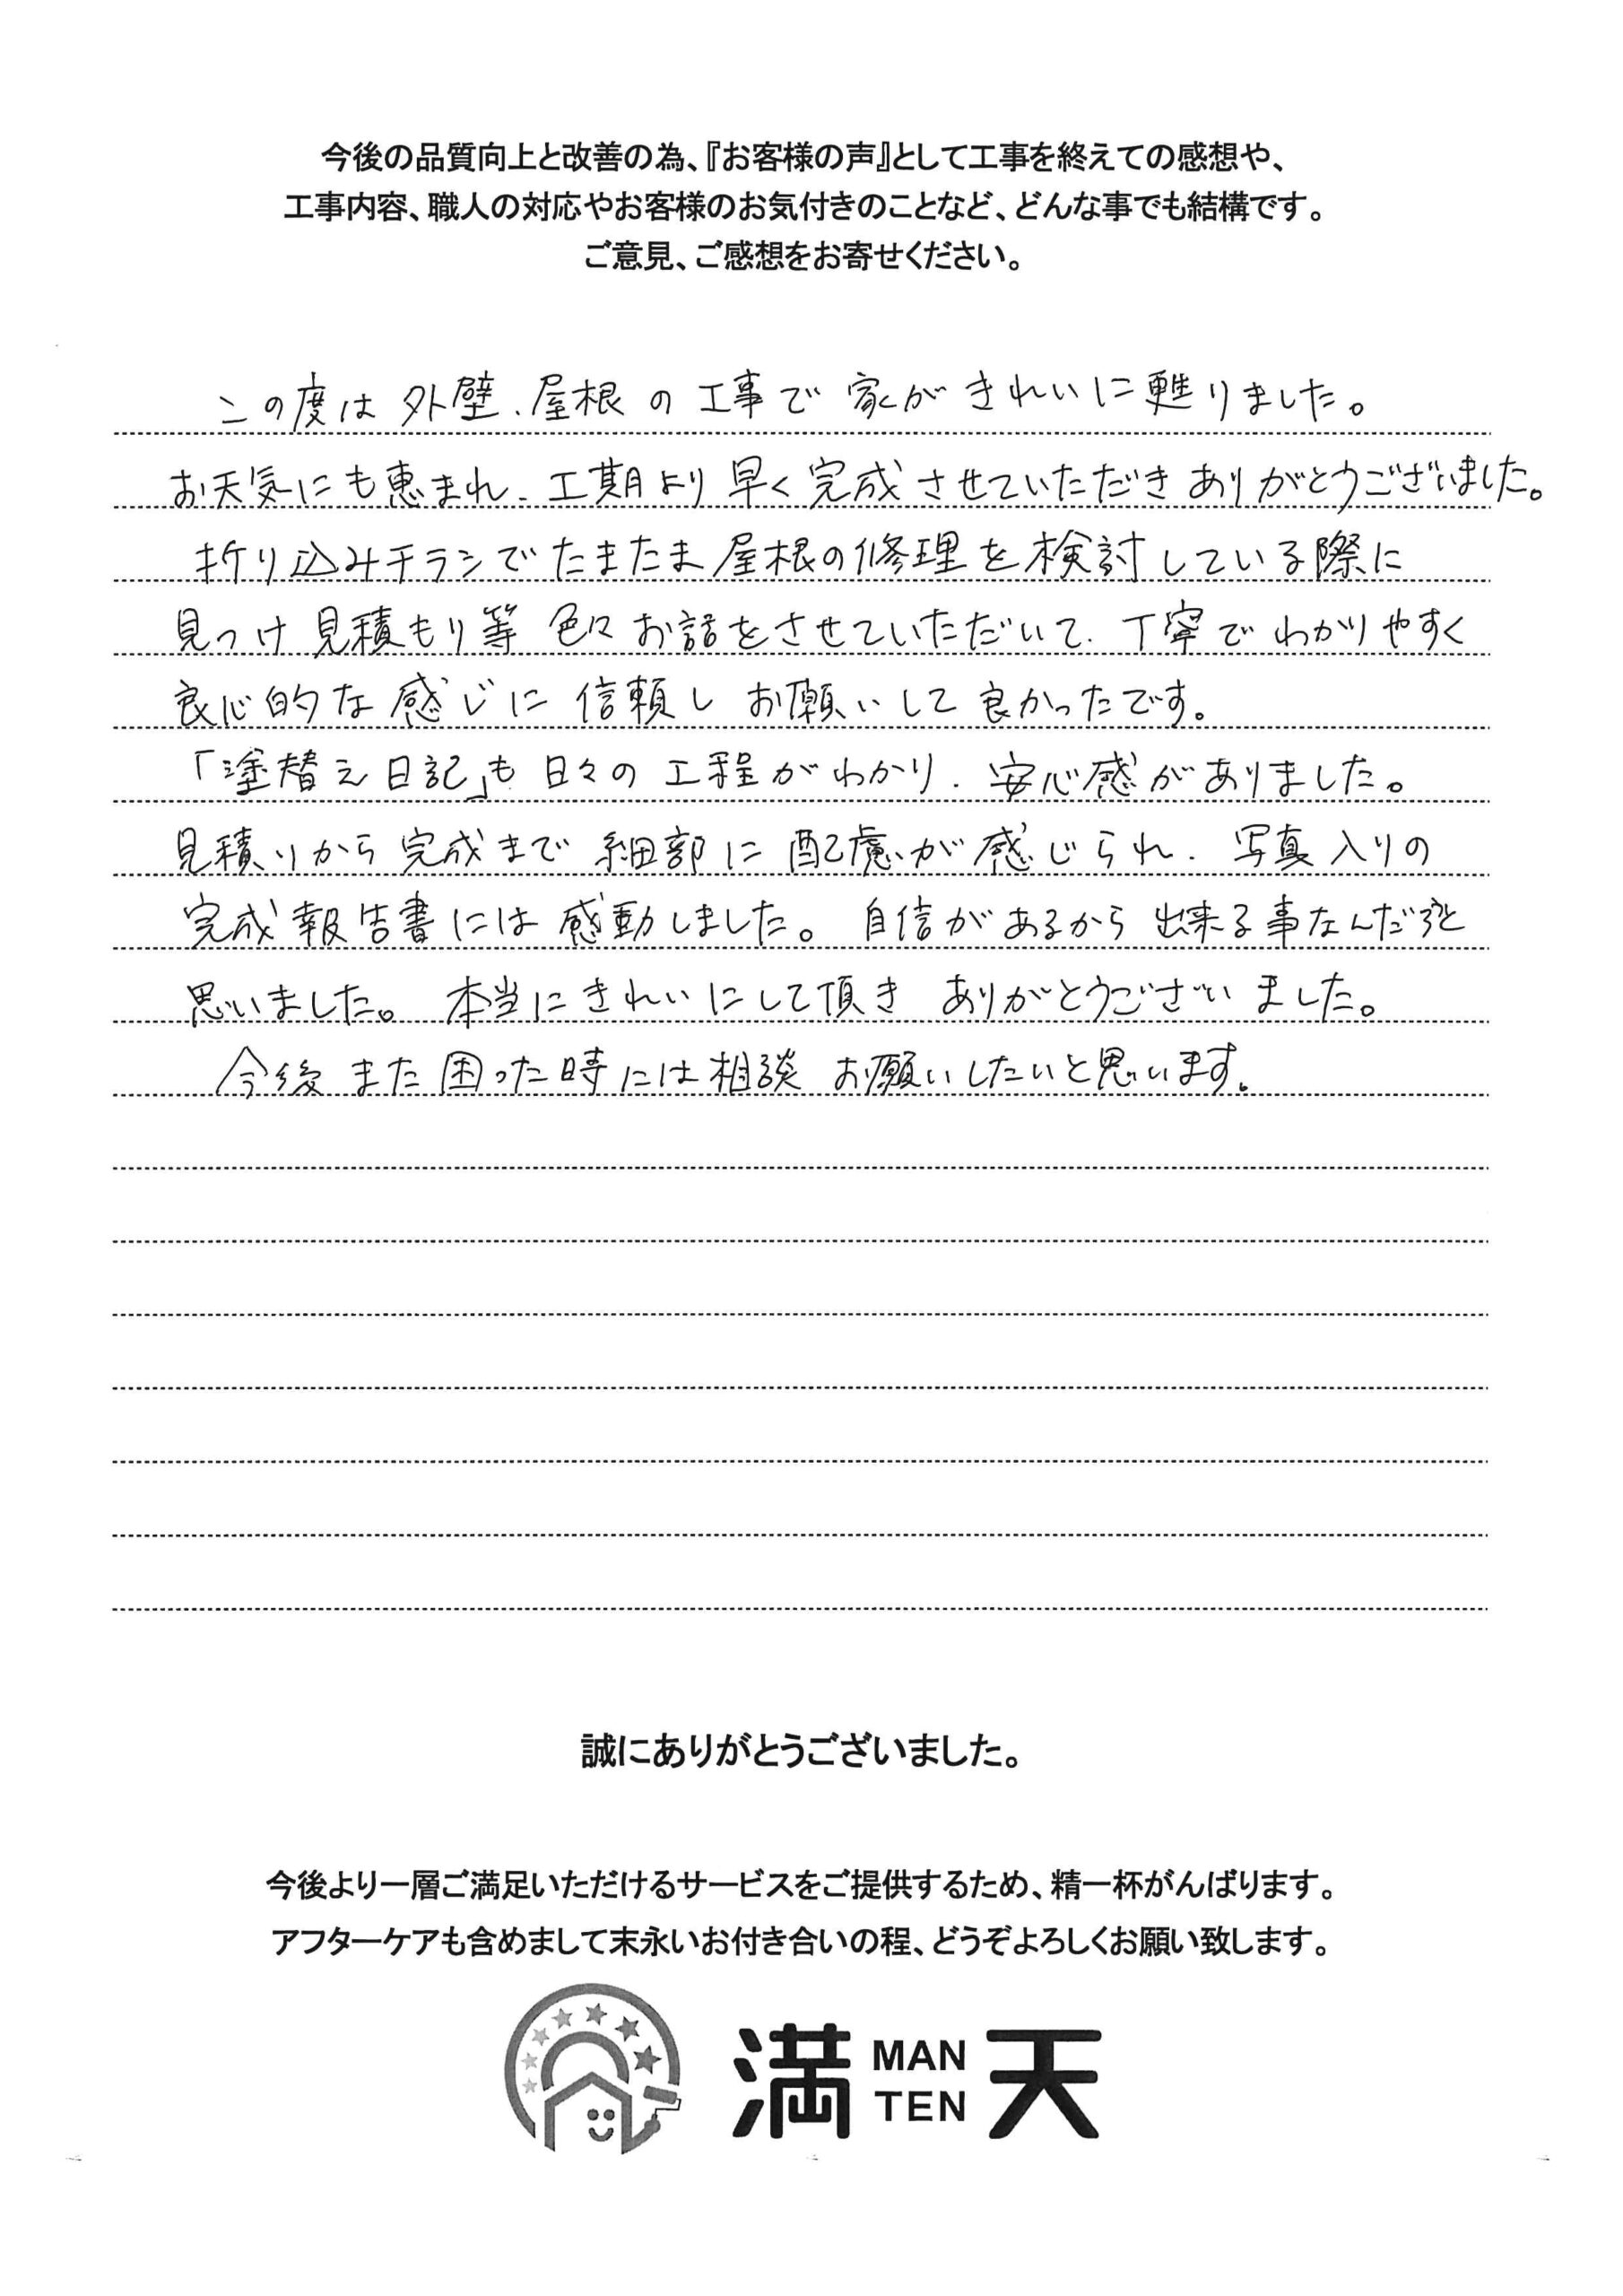 今後の品質向上と改善の為、『お客様の声』として工事を終えての感想や、
工事内容、職人の対応やお客様のお気付きのことなど、どんな事でも結構です。
ご意見、ご感想をお寄せください。
この度は外壁、屋根の工事で家がきれいに甦りました。
お天気にも恵まれ、工期より早く完成させていただきありがとうございました。
折り込みチラシでたまたま屋根の修理を検討している際に
見つけ見積もり等色々お話をさせていただいて、丁寧でわかりやすく
良心的な感じに信頼しお願いして良かったです。
「塗替え日記」も日々の工程がわかり、安心感がありました。
見積りから完成まで細部に配慮が感じられ、写真入りの
完成報告書には感動しました。自信があるから出来る事なんだろうと
思いました。本当にきれいにして頂きありがとうございました。
今後また困った時には相談お願いしたいと思います。
誠にありがとうございました。
今後より一層ご満足いただけるサービスをご提供するため、精一杯がんばります。
アフターケアも含めまして末永いお付き合いの程、どうぞよろしくお願い致します。
満 MAN TEN 天